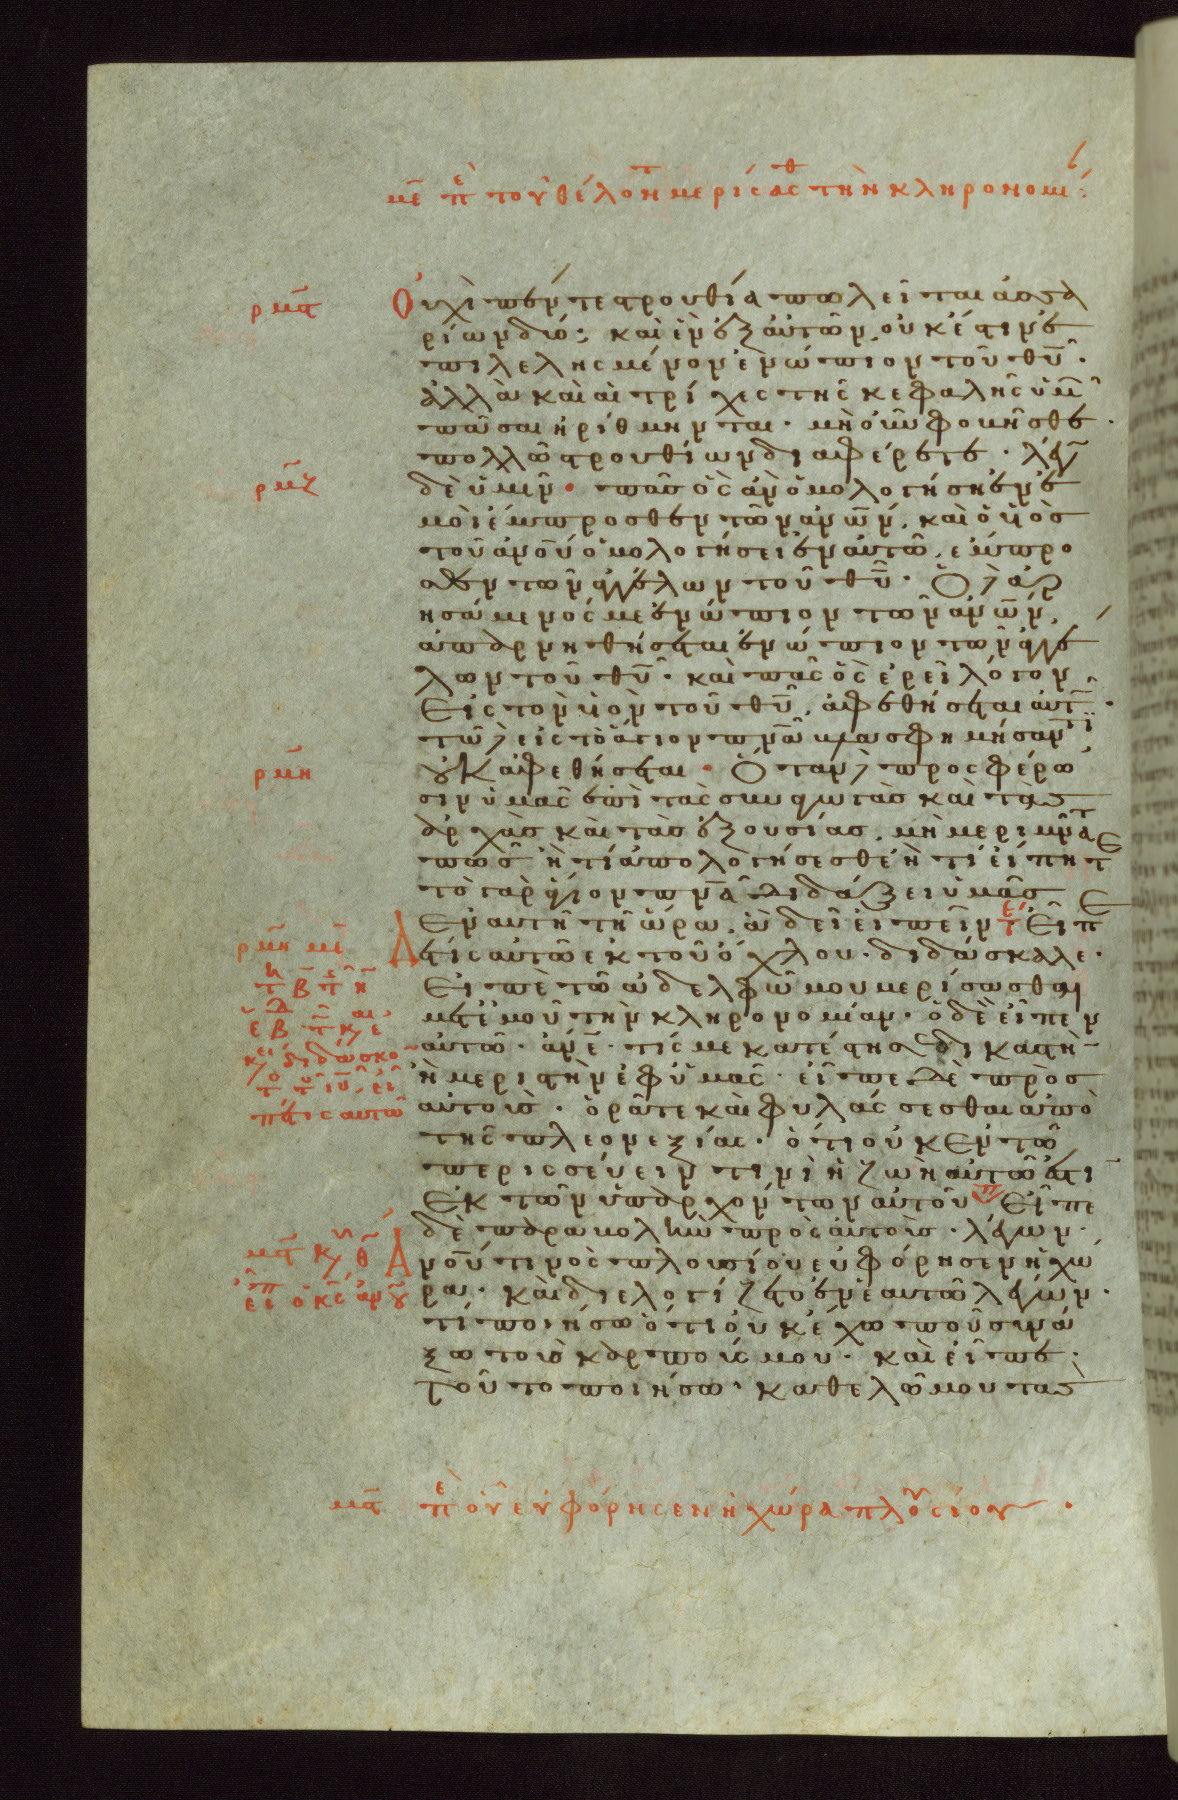 με περὶ τοῦ θέλοντ μερίσασθ τὴν κληρονομί
Οὐχὶ πέντε στρουθία πωλεῖται ἀσσα
ρίων δύο; καὶ ἓν ἐξ αὐτῶν οὐκ ἔστιν ἐ
πιλελησμένον ἐνώπιον τοῦ θῦ·
ρμς
ἀλλὰ καὶ αἱ τρίχες τῆς κεφαλῆς ὑμῶ
πᾶσαι ἠρίθμηνται· μὴ οὖν φοβῆσθε·
πολλῶ στρουθίων διαφέρετε· λέγω
ρμζ
δὲ ὑμῖν· πᾶσ ὃς ἀν ὁμολογήση ἐν ἐ
μοὶ ἔμπροσθεν τῶν ἀνῶν, καὶ ὁ υἱὸσ
τοῦ ἀνοῦ ὁμολογήσει ἐν αὐτῶ, ἔμπρο
σθεν τῶν ἀγγέλων τοῦ θῦ· Ὁ δὲ ἀρ
νησάμενός με ἐνώπιον τῶν ἀνῶν,
ἀπαρνηθήσεται ἐνώπιον τῶν ἀγγέ
λων τοῦ θῦ· καὶ πᾶς ὃς ἐρεῖ λόγον
Εἰς τὸν υἱὸν τοῦ θῦ, ἀφεθήσεται αὐτ·
τῶ δὲ εἰς τὸ ἅγιον πνᾶ βλασφημήσαντι
ρμη
οὐκ ἀφεθήσεται· Ὅταν δὲ προσφέρω
σιν ὑμᾶς ἐπὶ τὰς συναγωγὰσ καὶ τὰσ
ἀρχὰσ καὶ τὰσ ἐξουσίασ, μὴ μεριμνᾶτε
πῶσ ἢ τί ἀπολογήσεσθε ἢ τί εἴπητε
τὸ γὰρ ἅγιον πνᾶ διδάξει ὑμᾶσ
Ἐν αυτῆ τῆ ὥρα, ἃ δεῖ εἰπεῖν· Εἶπε
ρμη με
δέ τις αὐτῶ ἐκ τοῦ ὄχλου· διδάσκαλε·
Εἰπὲ τῶ ἀδελφῶ μου μερίσασθαι
μετ ἐμοῦ τὴν κληρονομίαν· ὁ δὲ εἶπεν
αὐτῶ· ἄνε· τίς με κατέστησε δικαστὴ
ἢ μεριστὴν ἐφ ὑμᾶς· εἶπε δὲ πρὸσ
αὐτοὺσ· ὁρᾶτε καὶ φυλάσσεσθαι ἀπὸ
τῆς πλεονεξίας· ὅτι οὐκ ἐν τῶ
περισσεύειν τινὶ ἡ ζωὴ αὐτῶ ἐστὶ
Ἐκ τῶν ὑπαρχόντων αὐτοῦ Εἶπε
δὲ παραβολὴν πρὸς αὐτοὺσ· λέγων·
Ανοῦ τινὸς πλουσίου εὐφόρησεν ἡ χώ
ρα· καὶ διελογίζετο ἐν ἑαυτῶ λέγων·
τί ποιήσω ὅτι οὐκ ἔχω ποῦ συνά
ξω τοὺσ καρπούς μου· καὶ εἶπε·
τοῦτο ποιήσω· καθελῶ μου τὰσ
μς περὶ οὗ εὐφόρησεν ἡ χώρα πλουσίου·